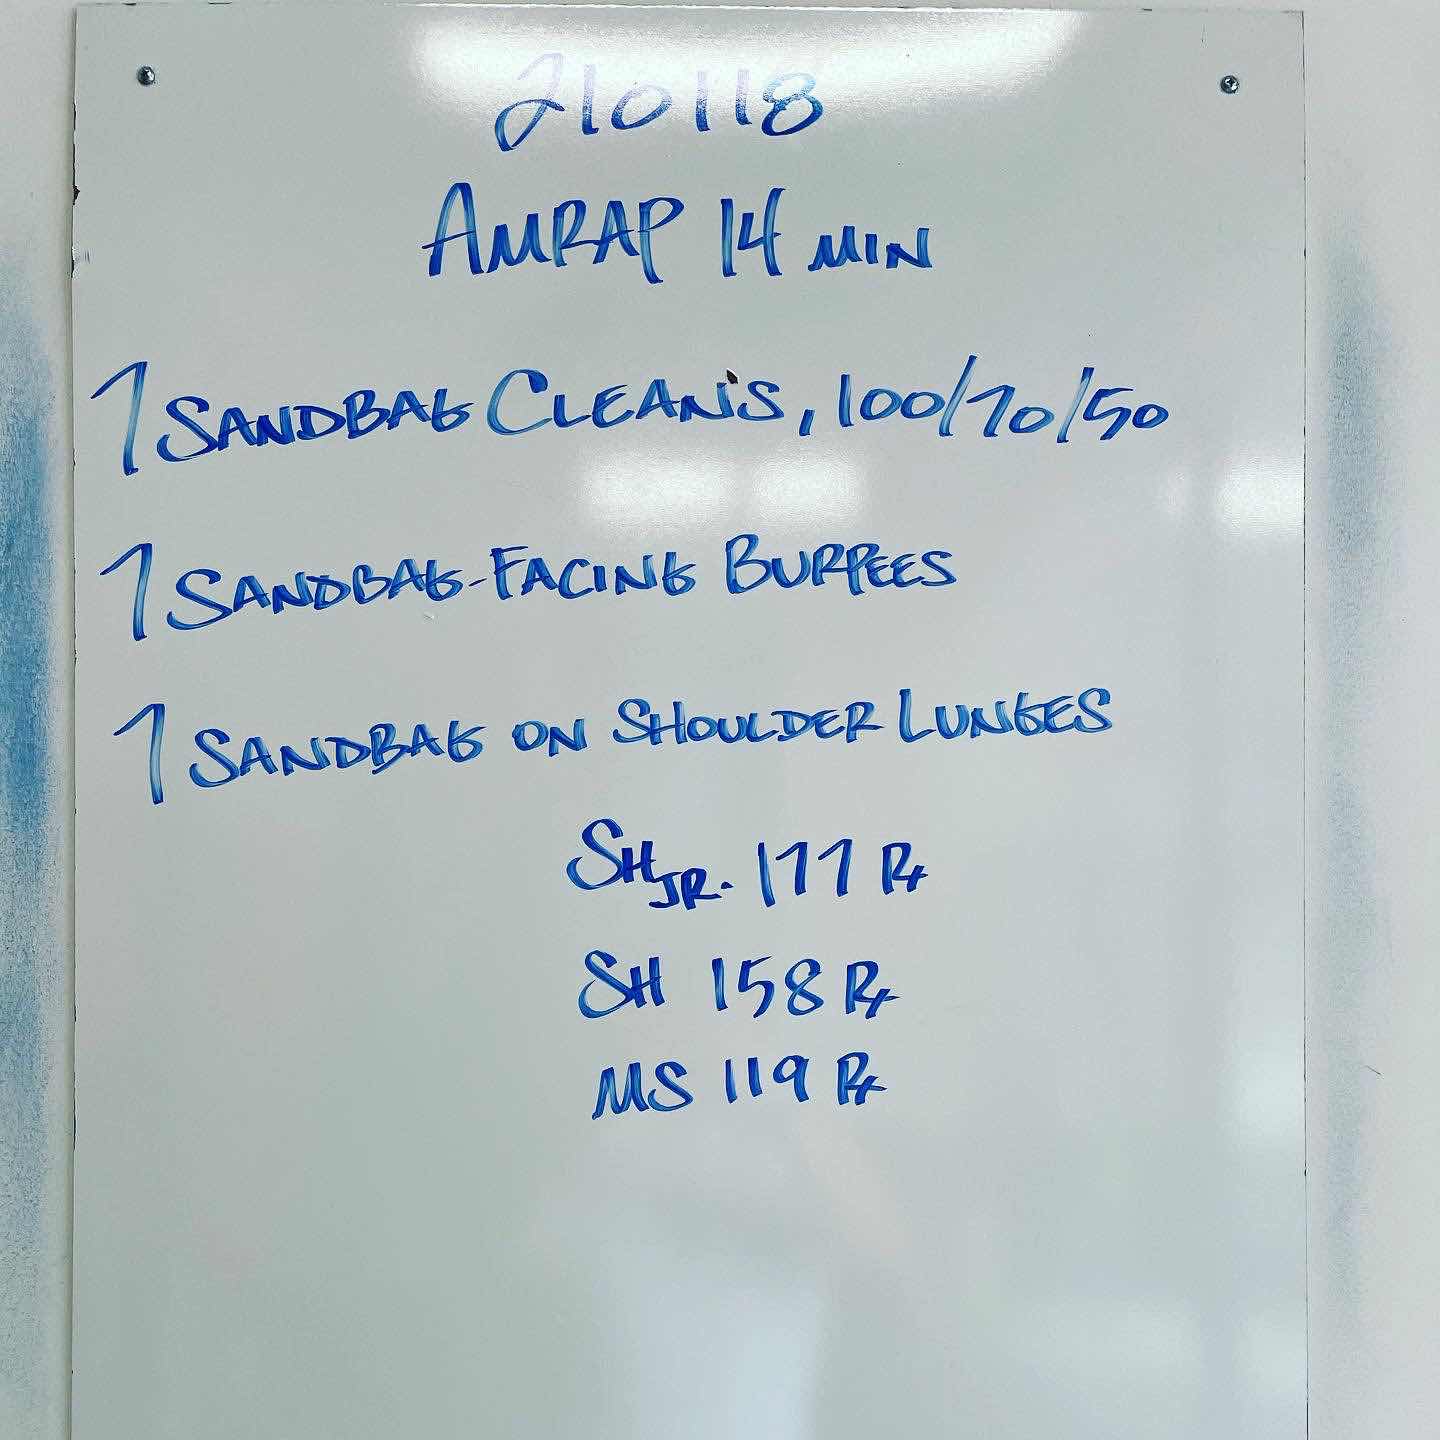 210118
AMRAP 14 MIN
7 SANDBAG CLEANS, 100/70/50
7 SANDBAG-FACING BURPEES
7 SANDBAG ON SHOULDER LUNGES
SH JR. 177 Rx
SH 158 Rx
MS 119 Rx